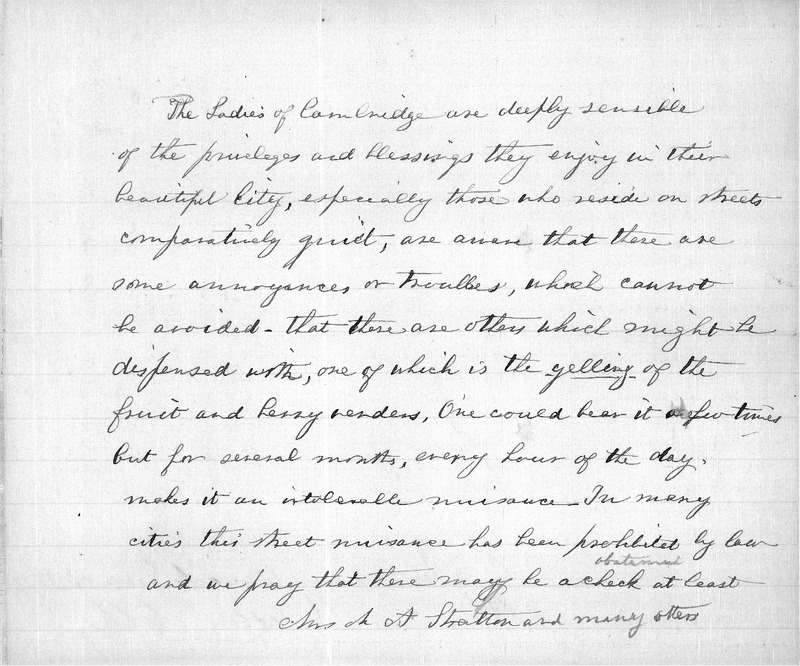 The Ladies of Cambridge are deeply sensible
of the privileges and blessings they enjoy in their
beautiful City, especially those who reside on streets
comparatively quiet, are aware that there are
some annoyances or troubles, which cannot
be avoided - that there are others which might be
dispensed with, one of which is the yelling of the
fruit and berry venders, One could bear it a few times
but for several months, every hour of the day,
makes it an intolerable nuisance - In many
cities this street nuisance has been prohibited by law
abatement
and we pray that there may be a check at least
Mrs M A Stratton and many others